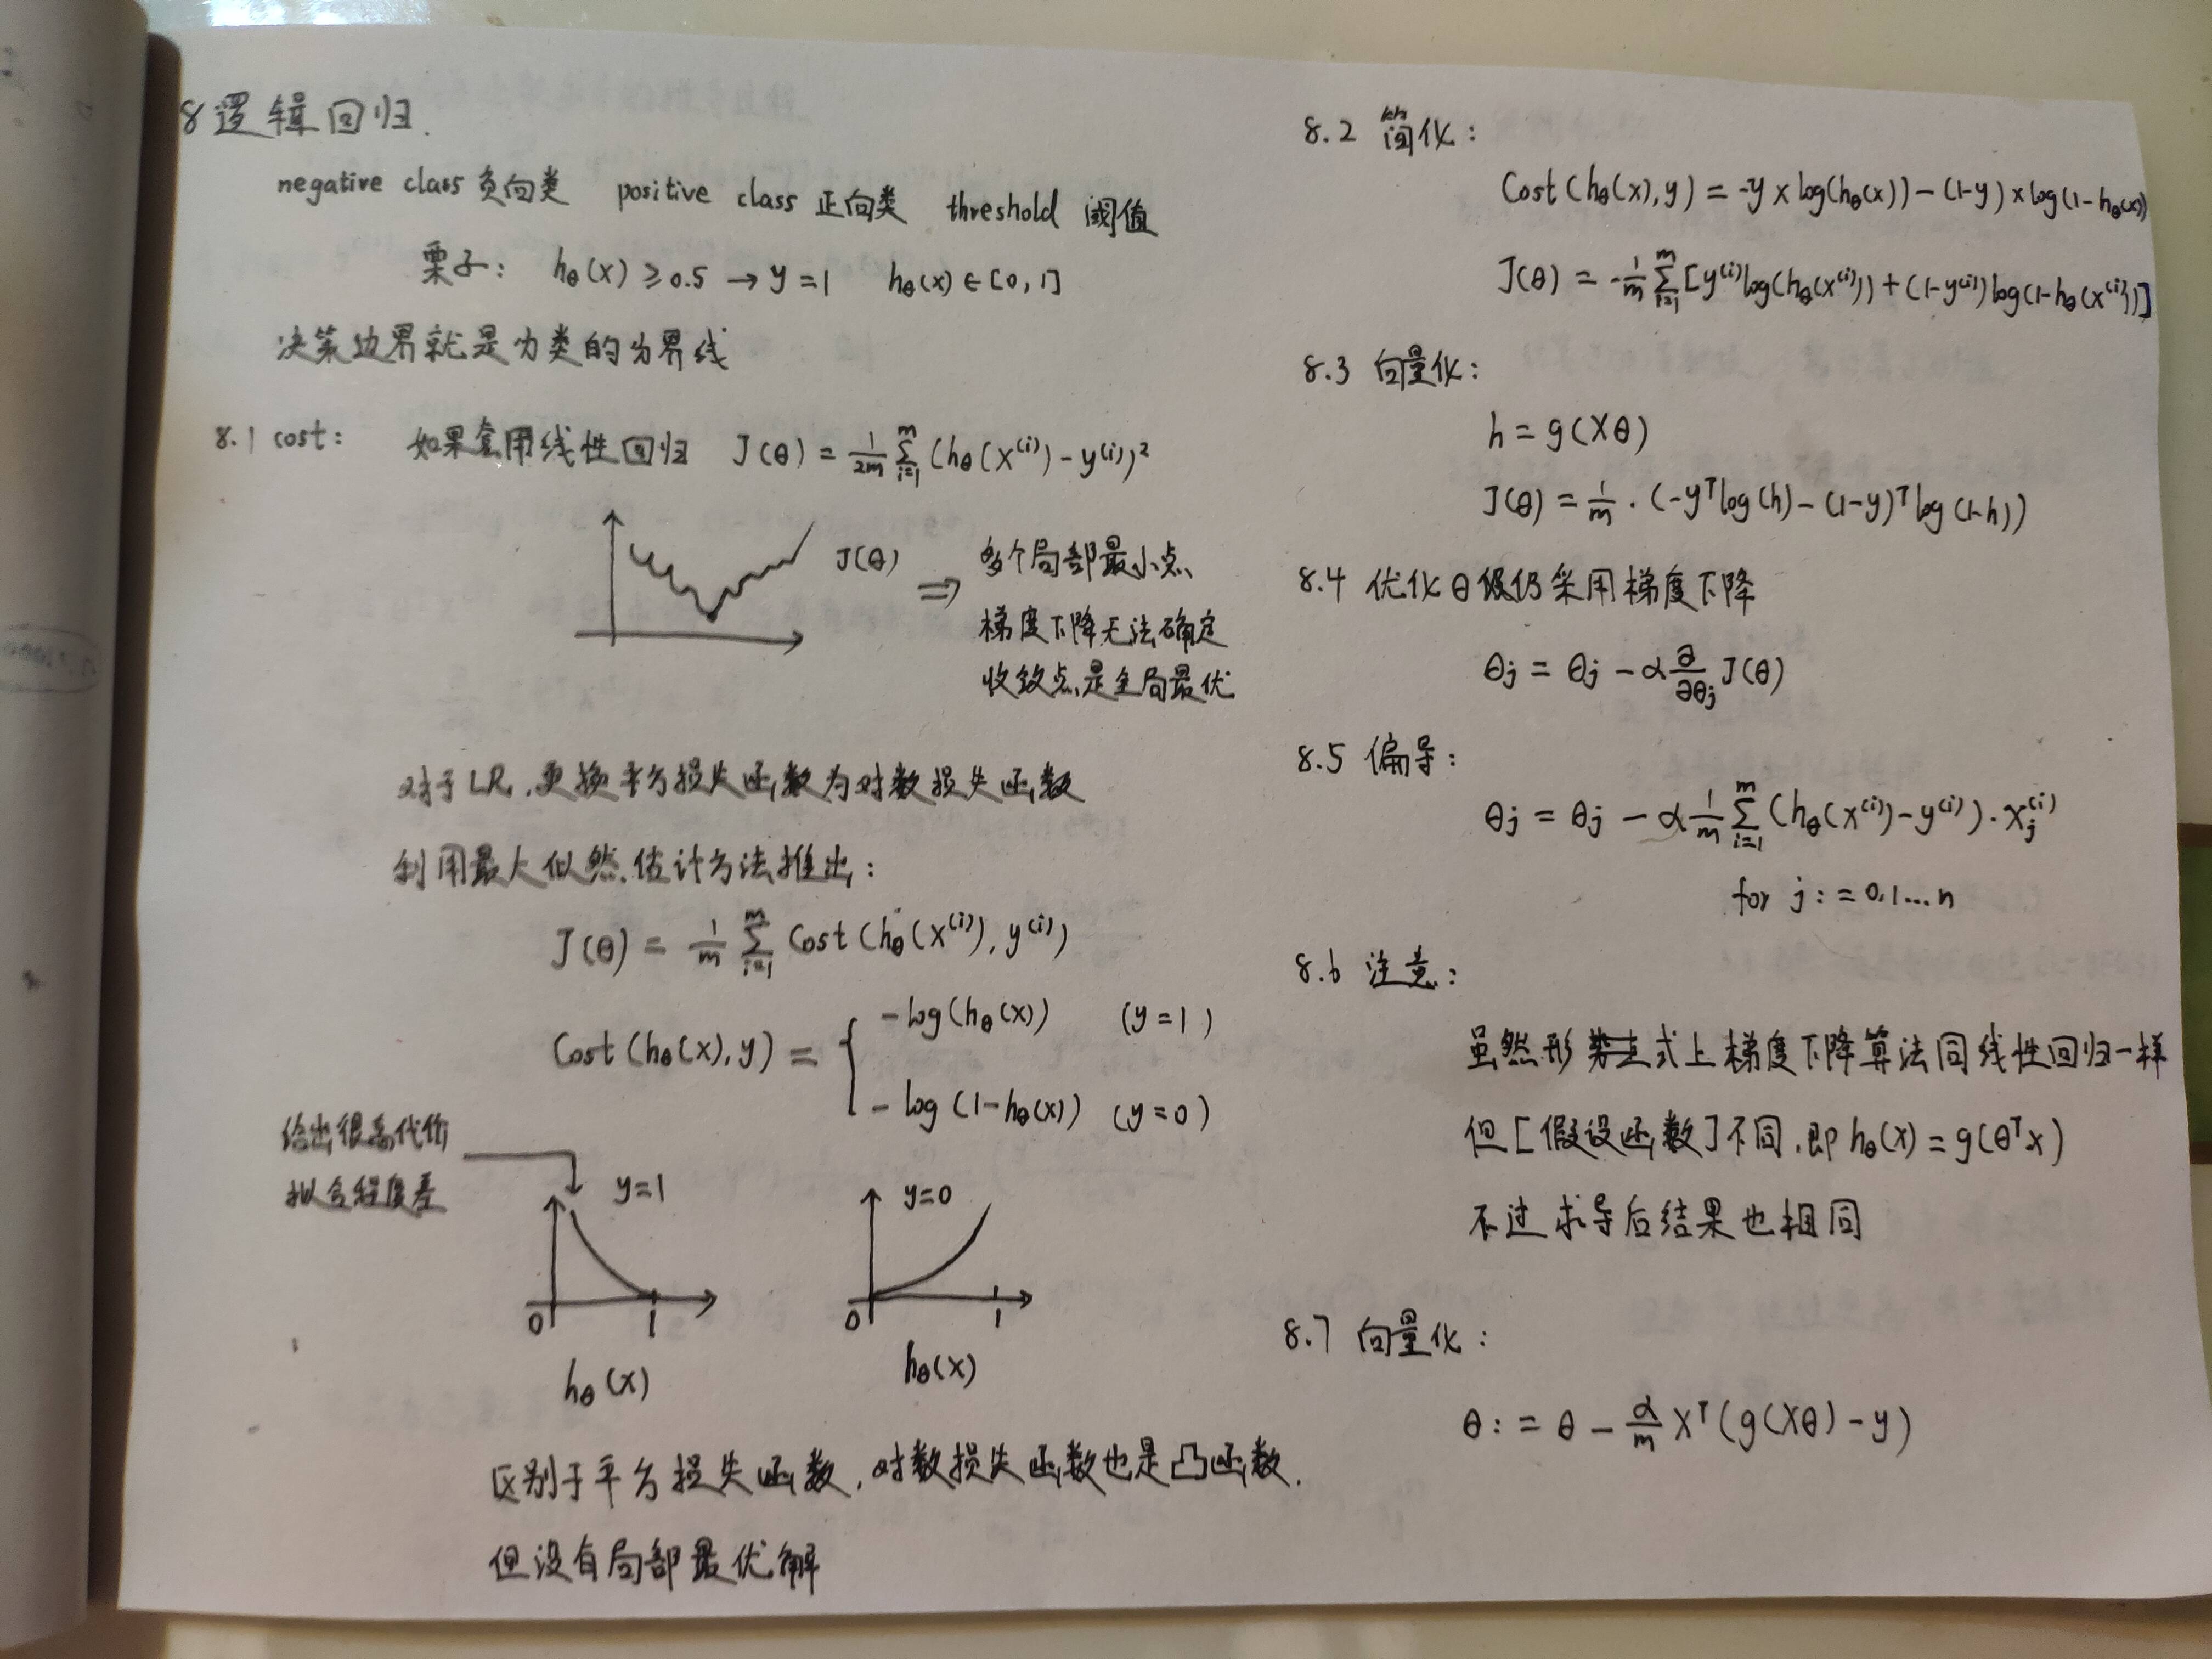 8 逻辑回归.
negative class 负向类 positive class 正向类 threshold 阈值
栗子: hθ(x) ≥ 0.5 → y = 1 hθ(x) ∈ [0, 1]
决策边界就是分类的分界线
8.1 cost: 如果套用线性回归 J(θ) = 1/2m Σ_{i=1}^{m} (hθ(x^(i)) - y^(i))²
J(θ) ⇒ 多个局部最小点、
梯度下降无法确定
收敛点是全局最优
对于LR,更换平方损失函数为对数损失函数
利用最大似然估计方法推出:
J(θ) = 1/m Σ_{i=1}^{m} Cost(hθ(x^(i)), y^(i))
Cost(hθ(x), y) = { -log(hθ(x)) (y=1)
-log(1-hθ(x)) (y=0)
给出很高代价
拟合程度差
y=1 y=0
0 1 0 1
hθ(x) hθ(x)
区别于平方损失函数,对数损失函数也是凸函数.
但没有局部最优解
8.2 简化:
Cost(hθ(x), y) = -y × log(hθ(x)) - (1-y) × log(1-hθ(x))
J(θ) = -1/m Σ_{i=1}^{m} [y^(i) log(hθ(x^(i))) + (1-y^(i)) log(1-hθ(x^(i)))]
8.3 向量化:
h = g(Xθ)
J(θ) = 1/m · (-y^T log(h) - (1-y)^T log(1-h))
8.4 优化θ仍采用梯度下降
θj = θj - α ∂/∂θj J(θ)
8.5 偏导:
θj = θj - α 1/m Σ_{i=1}^{m} (hθ(x^(i)) - y^(i)) · x_j^(i)
for j := 0,1...n
8.6 注意:
虽然形式上梯度下降算法同线性回归一样
但[假设函数]不同,即 hθ(x) = g(θ^T x)
不过求导后结果也相同
8.7 向量化:
θ := θ - α/m X^T (g(Xθ) - y)